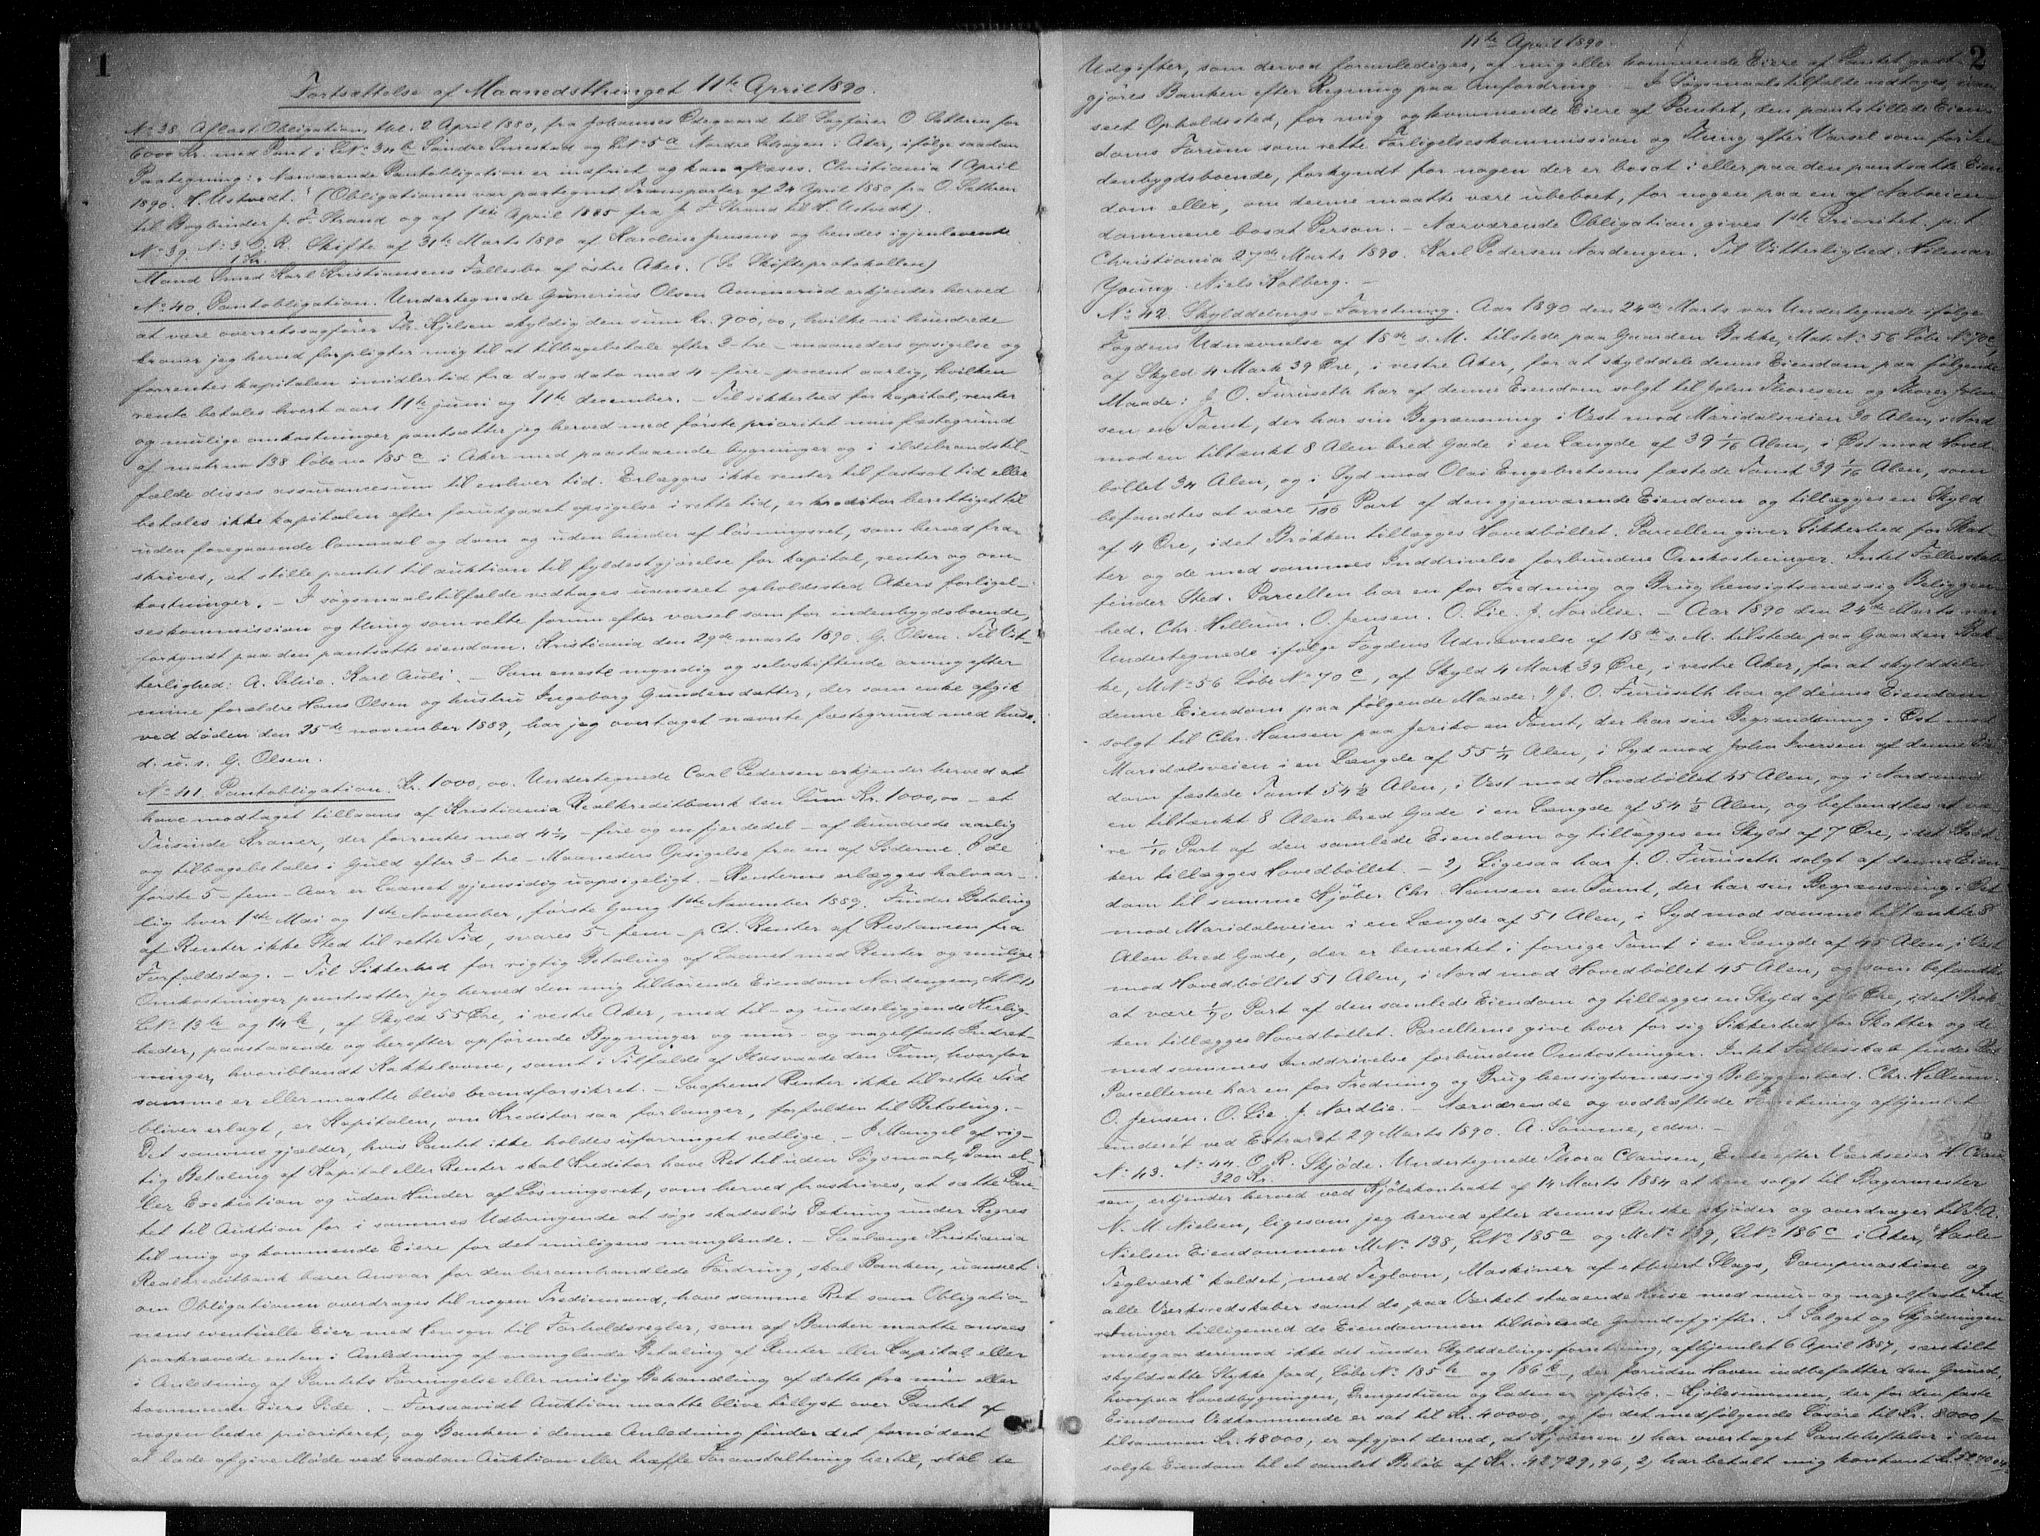 1
Fortsættelse af Maanedsthinget 11te April 1890.
No 38. Aflæst Obligation, dat. 2 April 1880, fra Johannes Ødegaard til Sagfører O. Sattren for
6000 Kr. med Pant i LNo 34b Søndre Smestad og LNo 5a Nordre Skogen i Aker, ifølge saadan
Paategning: "Nærværende Pantobligation er indfriet og kan aflæses. Christiania 1 April
1890. H. Ustvedt." (Obligationen var paategnet Transporter af 24 April 1880 fra O. Sattren
til Bogbinder J. F. Strand og af 1ste April 1885 fra J. F. Strand til H. Ustvedt).
No 39. No 3. O. R. Skifte af 31te Marts 1890 af Karoline Jensens og hendes igjenlevende
1 Kr.
Mand Smed Karl Kristiansens Fællesbo af østre Aker. (Se Skifteprotokollen)
No 40. Pantobligation. Undertegnede Gunerius Olsen Ammerud erkjender herved
at være overretssagfører Th. Kjelsen skyldig den sum kr. 900,00, hvilke ni hundrede
kroner jeg herved forpligter mig til at tilbagebetale efter 3-tre-maaneders opsigelse og
forrentes kapitalen imidlertid fra dags dato med 4-fire-procent aarlig, hvilken
rente betales hvert aars 11te juni og 11te december. – Til sikkerhed for kapital, renter
og mulige omkostninger pantsætter jeg herved med første prioritet min fæstegrund
af matr no 138 løbe no 185a i Aker med paastaaende bygninger og i ildebrandstil-
fælde disses assurancesum til enhver tid. Erlægges ikke renter til fastsat tid eller
betales ikke kapitalen efter forudgaaet opsigelse i rette tid, er kreditor berettiget til
uden foregaaende lovmaal og dom og uden hinder af løsningsret, som herved fra-
skrives, at stille pantet til auktion til fyldestgjørelse for kapital, renter og om-
kostninger. – I søgsmaalstilfælde vedtages uanseet opholdssted Akers forligel-
seskommission og thing som rette forum efter varsel som for indenbygdsboende,
forkyndt paa den pantsatte eiendom. Kristiania den 29de marts 1890. G. Olsen. Til Vit-
terlighed: A. Schie. Karl Auli. – Som eneste myndig og selvskiftende arving efter
mine forældre Hans Olsen og hustru Ingeborg Gundersdatter, der som enke afgik
ved døden den 25de november 1889, har jeg overtaget nævnte fæstegrund med huse.
d. u. s. G. Olsen.
No 41. Pantobligation. Kr. 1000,00. Undertegnede Carl Pedersen erkjender herved at
have modtaget tillaans af Kristiania Realkreditbank den Sum Kr. 1000,00 – et
Tusinde Kroner, der forrentes med 4 1/4 – fire og en fjerdedel – af hundrede aarlig
og tilbagebetales i Guld efter 3-tre-Maaneders Opsigelse fra en af Siderne. I de
første 5-fem-Aar er Laanet gjensidig uopsigeligt. – Renterne erlægges halvaar-
lig hver 1ste Mai og 1ste November, første Gang 1ste November 1889. Finder Betaling
af Renter ikke Sted til rette Tid, svares 5-fem-pCt. Renter af Restancen fra
Forfaldsdag. – Til Sikkerhed for rigtig Betaling af Laanet med Renter og mulige
Omkostninger pantsætter jeg herved den mig tilhørende Eiendom Nordengen, M.No
LNo 13b og 14b, af Skyld 55 Øre, i vestre Aker, med til- og underliggende Herlig-
heder, paastaaende og herefter opførende Bygninger og mur- og nagelfaste Indret-
ninger, hvoriblandt Kakkelovne, samt i Tilfælde af Ildsvaade den Sum, hvorfor
samme er eller maatte blive brandforsikret. – Saafremt Renter ikke til rette Tid
bliver erlagt, er Kapitalen, om Kreditor saa forlanger, forfalden til Betaling. –
Det samme gjælder, hvis Pantet ikke holdes uforringet vedlige. – I Mangel af rig-
tig Betaling af Kapital eller Renter skal Kreditor have Ret til uden Søgsmaal, Dom el-
ler Exekution og uden Hinder af Løsningsret, som herved fraskrives, at sætte Pan-
tet til Auktion for i sammes Udbringende at søge skadesløs Dækning under Regres
til mig og kommende Eiere for det muligens manglende. – Saalænge Kristiania
Realkreditbank bærer Ansvar for den heromhandlede Fordring, skal Banken, uanseet
om Obligationen overdrages til nogen Trediemand, have samme Ret som Obligatio-
nens eventuelle Eier med Hensyn til Forholdsregler, som af Banken maatte ansees
paakrævede enten i Anledning af manglende Betaling af Renter eller Kapital eller
i Anledning af Pantets Forringelse eller mislig Behandling af dette fra min eller
kommende Eiers Side. – Forsaavidt Auktion maatte blive tillyst over Pantet af
nogen bedre prioriteret, og Banken i denne Anledning finder det fornødent
at lade afgive Møde ved saadan Auktion eller træffe Foranstaltning hertil, skal de
11te April 1890.
2
Udgifter, som derved foranlediges, af mig eller kommende Eiere af Pantet godt-
gjøres Banken efter Regning paa Anfordring. – I Søgsmaalstilfælde vedtages, uan-
seet Opholdssted, for mig og kommende Eiere af Pantet, den pantstillede Eien-
doms Forum som rette Forligelseskommission og Thing efter Varsel som for In-
denbygdsboende, forkyndt for nogen der er bosat i eller paa den pantsatte Eien-
dom eller, om denne maatte være ubeboet, for nogen paa en af Naboeien-
dommene bosat Person. – Nærværende Obligation gives 1ste Prioritet. p.t.
Christiania 27de Marts 1890. Karl Pedersen Nordengen. Til Vitterlighed. Hilmar
Young. Niels Kolberg. –
No 42. Skylddelings-Forretning. Aar 1890 den 24de Marts var Undertegnede ifølge
Fogdens Udnævnelse af 18de s. M. tilstede paa Gaarden Bakke, Matr. No 56 Løbe No 70c,
af Skyld 4 Mark 39 Øre, i vestre Aker, for at skylddele denne Eiendom paa følgende
Maade: J. O. Furuseth har af denne Eiendom solgt til John Thoresen og Thorer John-
sen en Tomt, der har sin Begrænsning i Vest mod Maridalsveien 30 Alen, i Nord
mod en tiltænkt 8 Alen bred Gade i en Længde af 39 1/16 Alen, i Øst mod Hoved-
bøllet 34 Alen, og i Syd mod Olai Engebretsens fæstede Tomt 39 1/16 Alen, som
befandtes at være 1/100 Part af den gjenværende Eiendom og tillægges en Skyld
af 4 Øre, idet Brøkken tillægges Hovedbøllet. Parcellen giver Sikkerhed for Skat-
ter og de med sammes Inddrivelse forbundne Omkostninger. Intet Fællesskab
finder Sted. Parcellen har en for Fredning og Brug hensigtsmæssig Beliggen-
hed. Chr. Hellum. O. Jensen. O. Lie. J. Nordlie. – Aar 1890 den 24de Marts var
Undertegnede ifølge Fogdens Udnævnelse af 18de s. M. tilstede paa Gaarden Bak-
ke, MNo 56 Løbe No 70c, af Skyld 4 Mark 39 Øre, i vestre Aker, for at skylddele
denne Eiendom paa følgende Maade: 1) J. O. Furuseth har af denne Eiendom
solgt til Chr. Hansen paa Jeriko en Tomt, der har sin Begrændsning i Øst mod
Maridalsveien i en Længde af 55 1/4 Alen, i Syd mod John Iversen af denne Eien-
dom fæstede Tomt 54 1/2 Alen, i Vest mod Hovedbøllet 45 Alen, og i Nord mod
en tiltænkt 8 Alen bred Gade i en Længde af 54 1/2 Alen, og befandtes at væ-
re 1/70 Part af den samlede Eiendom og tillægges en Skyld af 7 Øre, idet Brøk-
ken tillægges Hovedbøllet. – 2) Ligesaa har J. O. Furuseth solgt af denne Eien-
dom til samme Kjøber Chr. Hansen en Tomt, der har sin Begrænsning i Øst
mod Maridalsveien i en Længde af 51 Alen, i Syd mod samme tiltænkte 8
Alen bred Gade, der er bemærket i forrige Tomt i en Længde af 45 Alen, i Vest
mod Hovedbøllet 51 Alen, i Nord mod Hovedbøllet 45 Alen, og som befandtes
at være 1/70 Part af den samlede Eiendom og tillægges en Skyld af 6 Øre, idet Brøk-
ken tillægges Hovedbøllet. Parcellerne give hver for sig Sikkerhed for Skatter og de
med sammes Inddrivelse forbundne Omkostninger. Intet Fællesskab finder Sted.
Parcellerne har en for Fredning og Brug hensigtsmæssig Beliggenhed. Chr. Hellum.
O. Jensen. O. Lie. J. Nordlie. – Nærværende og vedhæftede Forretning afhjemlet
underet ved Extraret 29 Marts 1890. A. Somme, edsv. –
No 43. No 44. O. R. Skjøde. Undertegnede Thora Clausen, Enke efter Værkseier H. Clau-
320 Kr.
sen, erkjender herved ved Kjøbekontrakt af 14 Marts 1884 at have solgt til Bagermester
N. M. Nielsen, ligesom jeg herved efter dennes Ønske skjøder og overdrager til A.
Nielsen Eiendommen MNo 138, LNo 185a og MNo 139, LNo 186c i Aker, "Hasle
Teglværk" kaldet, med Teglovn, Maskiner af ethvert Slags, Dampmaskine og
alle Værksredskaber samt de paa Værket staaende Huse med mur- og nagelfaste Ind-
retninger tilligemed de Eiendommen tilhørende Grundafgifter. I Salget og Skjødningen
medgaar derimod ikke det under Skylddelingsforretning, afhjemlet 6 April 1887, særskilt
skyldsatte Stykke Jord, Løbe No 185b og 186b, der foruden Haven indbefatter den Grund,
hvorpaa Hovedbygningen, Drengestuen og Laden er opført. – Kjøbesummen, der for den faste
Eiendoms Vedkommende er sat til Kr. 40000, og for det medfølgende Løsøre til Kr. 8000 –
tilsammen Kr. 48000, er afgjort derved, at Kjøberen 1) har overtaget Pantehæftelser i den
solgte Eiendom til et samlet Beløb af Kr. 42729,96, 2) har betalt mig kontant Kr. 5270,04